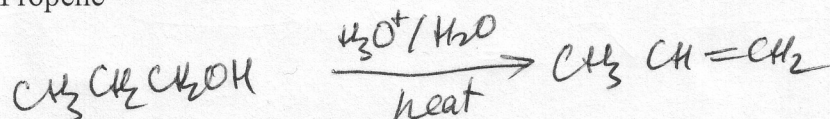 Propene
CH3CH2CH2OH H3O+/H2O heat CH3 CH=CH2